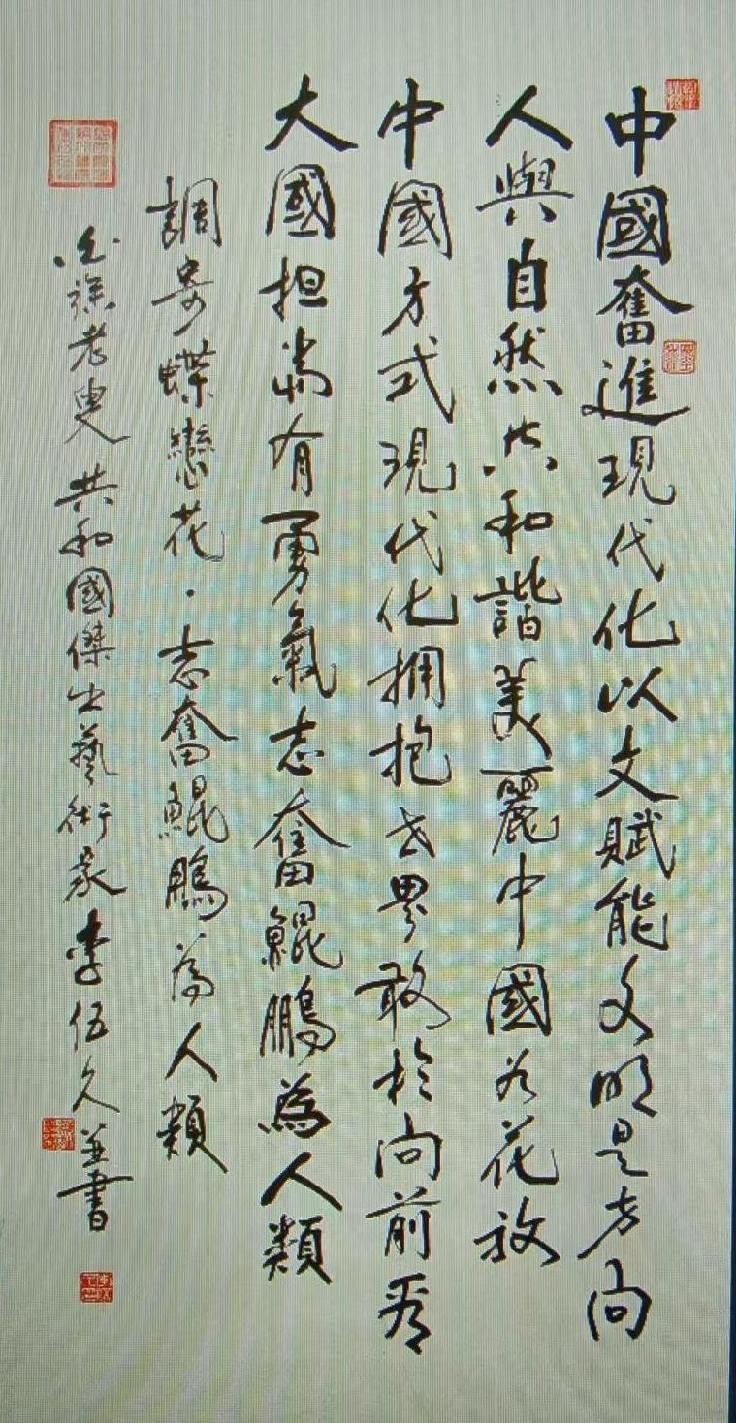 中國奮進現代化以文賦能文明是方向
人與自然共和諧美麗中國為花放
中國方式現代化擁抱世界敢於向前看
大國担當有勇氣志奮鯤鵬為人類
調寄蝶戀花·志奮鯤鵬為人類
老叟 共和國傑出藝術家李伍久並書